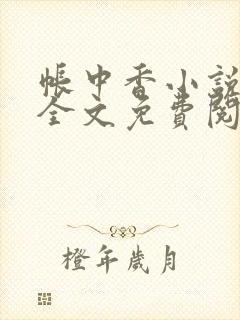 帳中香小說
全文免費閱
橙年歲月